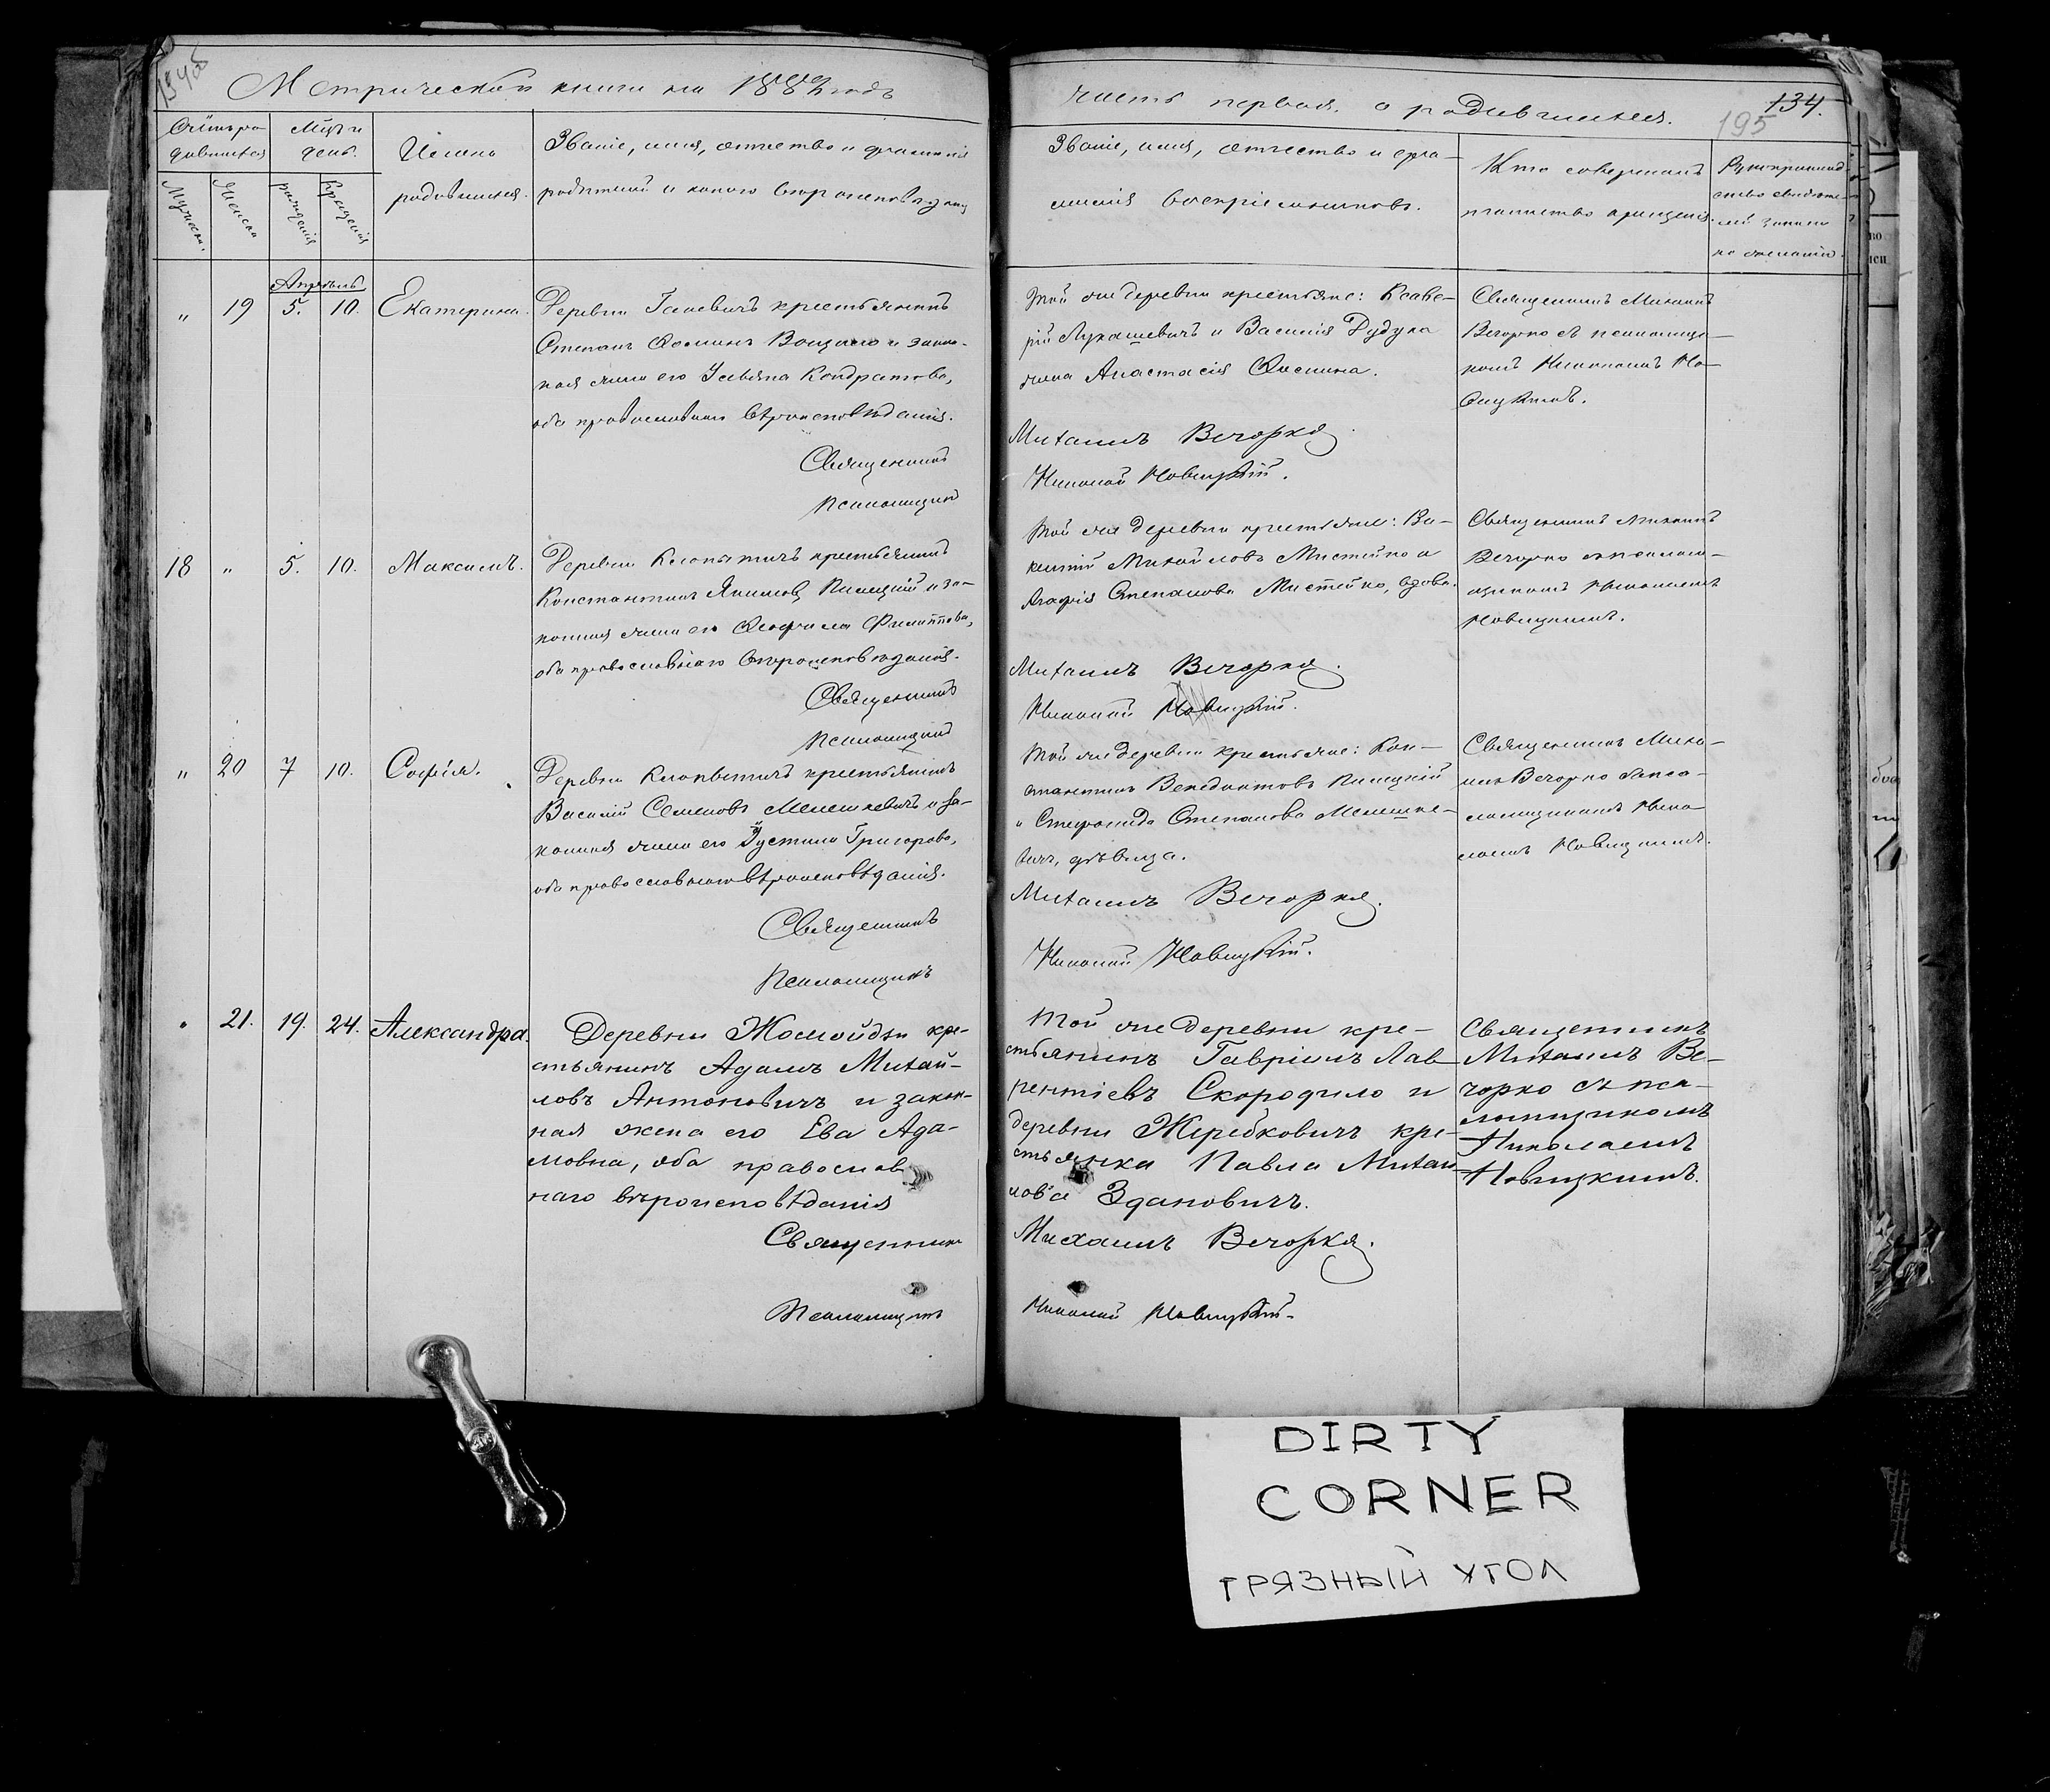 Метрической книги на 1882 годъ
часть первая, о родившихся.
134.
195
Счетъ ро-
дившихся
Мцъ и
день.
Имена
родившихся.
Званіе, имя, отчество и фамилія
родителей и какого вѣроисповѣданія
Мужеска.
Женска
рожденія
крещенія
Званіе, имя, отчество и фа-
милія воспріемниковъ.
Кто совершалъ
таинство крещенія.
Рукоприклад-
ство свидѣте-
лей записи
по желанію.
Апрѣль
„ 19 5. 10. Екатерина.
Деревни крестьянинъ
Степанъ Ѳоминъ и закон-
ная жена его Ульяна Кондратова,
оба православнаго вѣроисповѣданія.
Священникъ
Псаломщикъ
Той же деревни крестьяне: Ксаве-
рій Лукашевичъ и Василія Дудука
жена Анастасія Ѳомина.
Михаилъ Вечорко.
Николай Новицкій.
Священникъ Михаилъ
Вечорко съ псаломщи-
комъ Николаемъ Но-
вицкимъ.
18 „ 5. 10. Максимъ.
Деревни крестьянинъ
Константинъ Якимовъ и за-
конная жена его Ѳеофила Филиппова,
оба православнаго вѣроисповѣданія.
Священникъ
Псаломщикъ
Той же деревни крестьяне:
Михайловъ Мистейко и
Агафія Степанова Мистейко, вдова.
Михаилъ Вечорко.
Николай Новицкій.
Священникъ Михаилъ
Вечорко съ псалом-
щикомъ Николаемъ
Новицкимъ.
„ 20 7 10. Софія.
Деревни крестьянинъ
Василій Семеновъ Мелешкевичъ и за-
конная жена его Іустина Григорова,
оба православнаго вѣроисповѣданія.
Священникъ
Псаломщикъ
Той же деревни крестьяне: Кон-
стантинъ Венедиктовъ
и Стефанида Степанова Мелешке-
вичъ, дѣвица.
Михаилъ Вечорко.
Николай Новицкій.
Священникъ Миха-
илъ Вечорко съ пса-
ломщикомъ Нико-
лаемъ Новицкимъ.
„ 21. 19. 24. Александра.
Деревни Жомойдзи кре-
стьянинъ Адамъ Михай-
ловъ Антоновичъ и закон-
ная жена его Ева Ада-
мовна, оба православ
наго вѣроисповѣданія
Священникъ
Псаломщикъ
Той же деревни кре-
стьянинъ Гавріилъ Лав-
рентіевъ Скородило и
деревни Жеребковичъ кре-
стьянка Павла Михаи
лова Здановичъ.
Михаилъ Вечорко.
Николай Новицкій.
Священникъ
Михаилъ Ве-
чорко съ пса-
ломщикомъ
Николаемъ
Новицкимъ.
DIRTY
CORNER
ГРЯЗНЫЙ УГОЛ